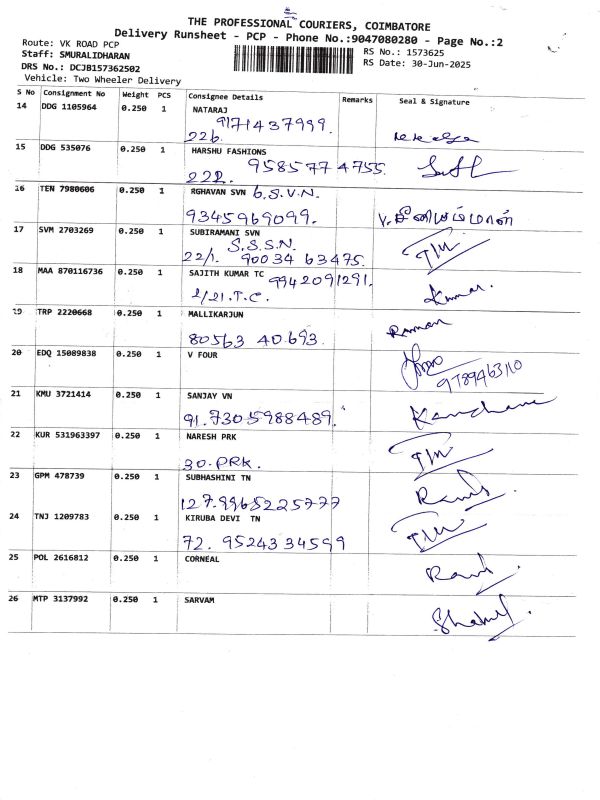 THE PROFESSIONAL COURIERS, COIMBATORE
Delivery Runsheet - PCP - Phone No.:9047080280 - Page No.:2
Route: VK ROAD PCP
RS No.: 1573625
Staff: SMURALIDHARAN
RS Date: 30-Jun-2025
DRS No.: DCJB157362502
Vehicle: Two Wheeler Delivery
S No Consignment No Weight PCS Consignee Details Remarks Seal & Signature
14 DDG 1105964 0.250 1 NATARAJ
9171437999.
226.
15 DDG 535076 0.250 1 HARSHU FASHIONS
222. 9585774755.
16 TEN 7980606 0.250 1 RGHAVAN SVN 6.S.V.N.
9345969099.
17 SVM 2703269 0.250 1 SUBIRAMANI SVN
S.S.S.N.
22/1. 90034 63475.
18 MAA 870116736 0.250 1 SAJITH KUMAR TC 9942091291.
2/21.T.C. Kumar.
19 TRP 2220668 0.250 1 MALLIKARJUN
80563 40.693. Raman
20 EDQ 15089838 0.250 1 V FOUR
9789463110
21 KMU 3721414 0.250 1 SANJAY VN
91.7305988489. Kanchana
22 KUR 531963397 0.250 1 NARESH PRK
30.PRK.
23 GPM 478739 0.250 1 SUBHASHINI TN
127.9965225777
24 TNJ 1209783 0.250 1 KIRUBA DEVI TN
72. 9524334599
25 POL 2616812 0.250 1 CORNEAL
26 MTP 3137992 0.250 1 SARVAM